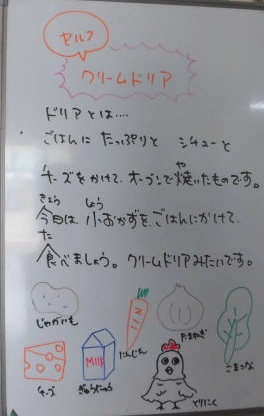 セルフ
クリームドリア
ドリアとは‥‥
ごはんに たっぷりと シチューと
チーズをかけて、オーブンで焼いたものです。
や
きょう しょう
今日は、小おかずを、ごはんにかけて、
た
食べましょう。クリームドリアみたいです。
じゃがいも
たまねぎ
にんじん
こまつな
MILK
チーズ
ぎゅうにゅう
とりにく